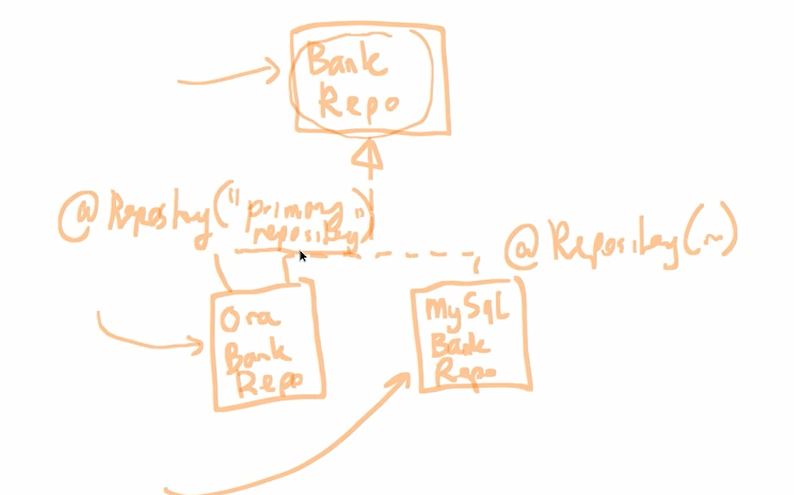 Bank
Repo
@Repository("primary
repository")
@Repository(~)
Ora
Bank
Repo
MySql
Bank
Repo